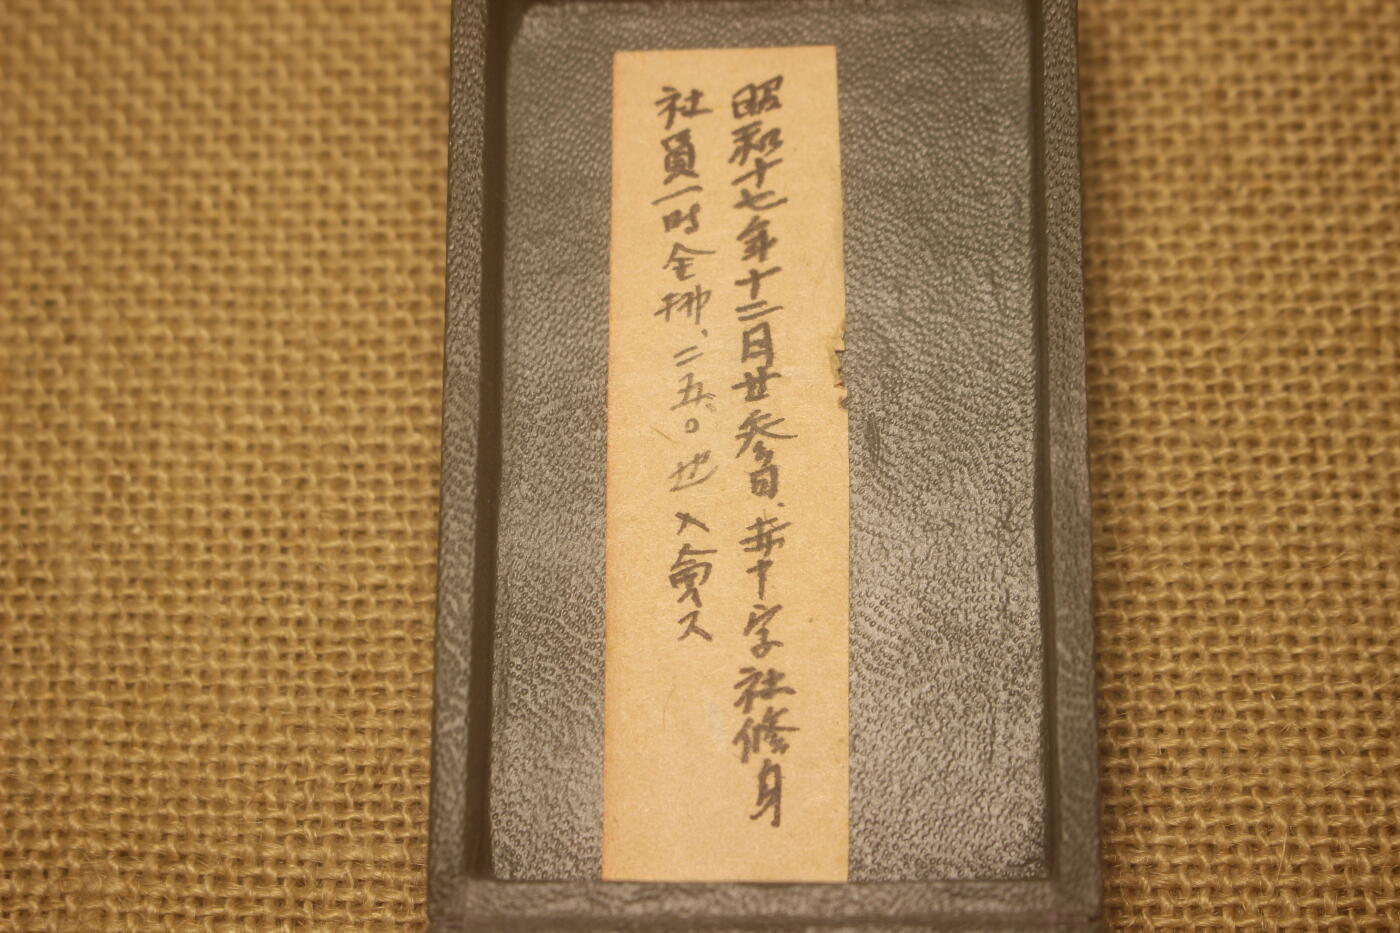 昭和十七年十二月廿参日、赤十字社修身
社員一時金拂、二五。也 入會ス